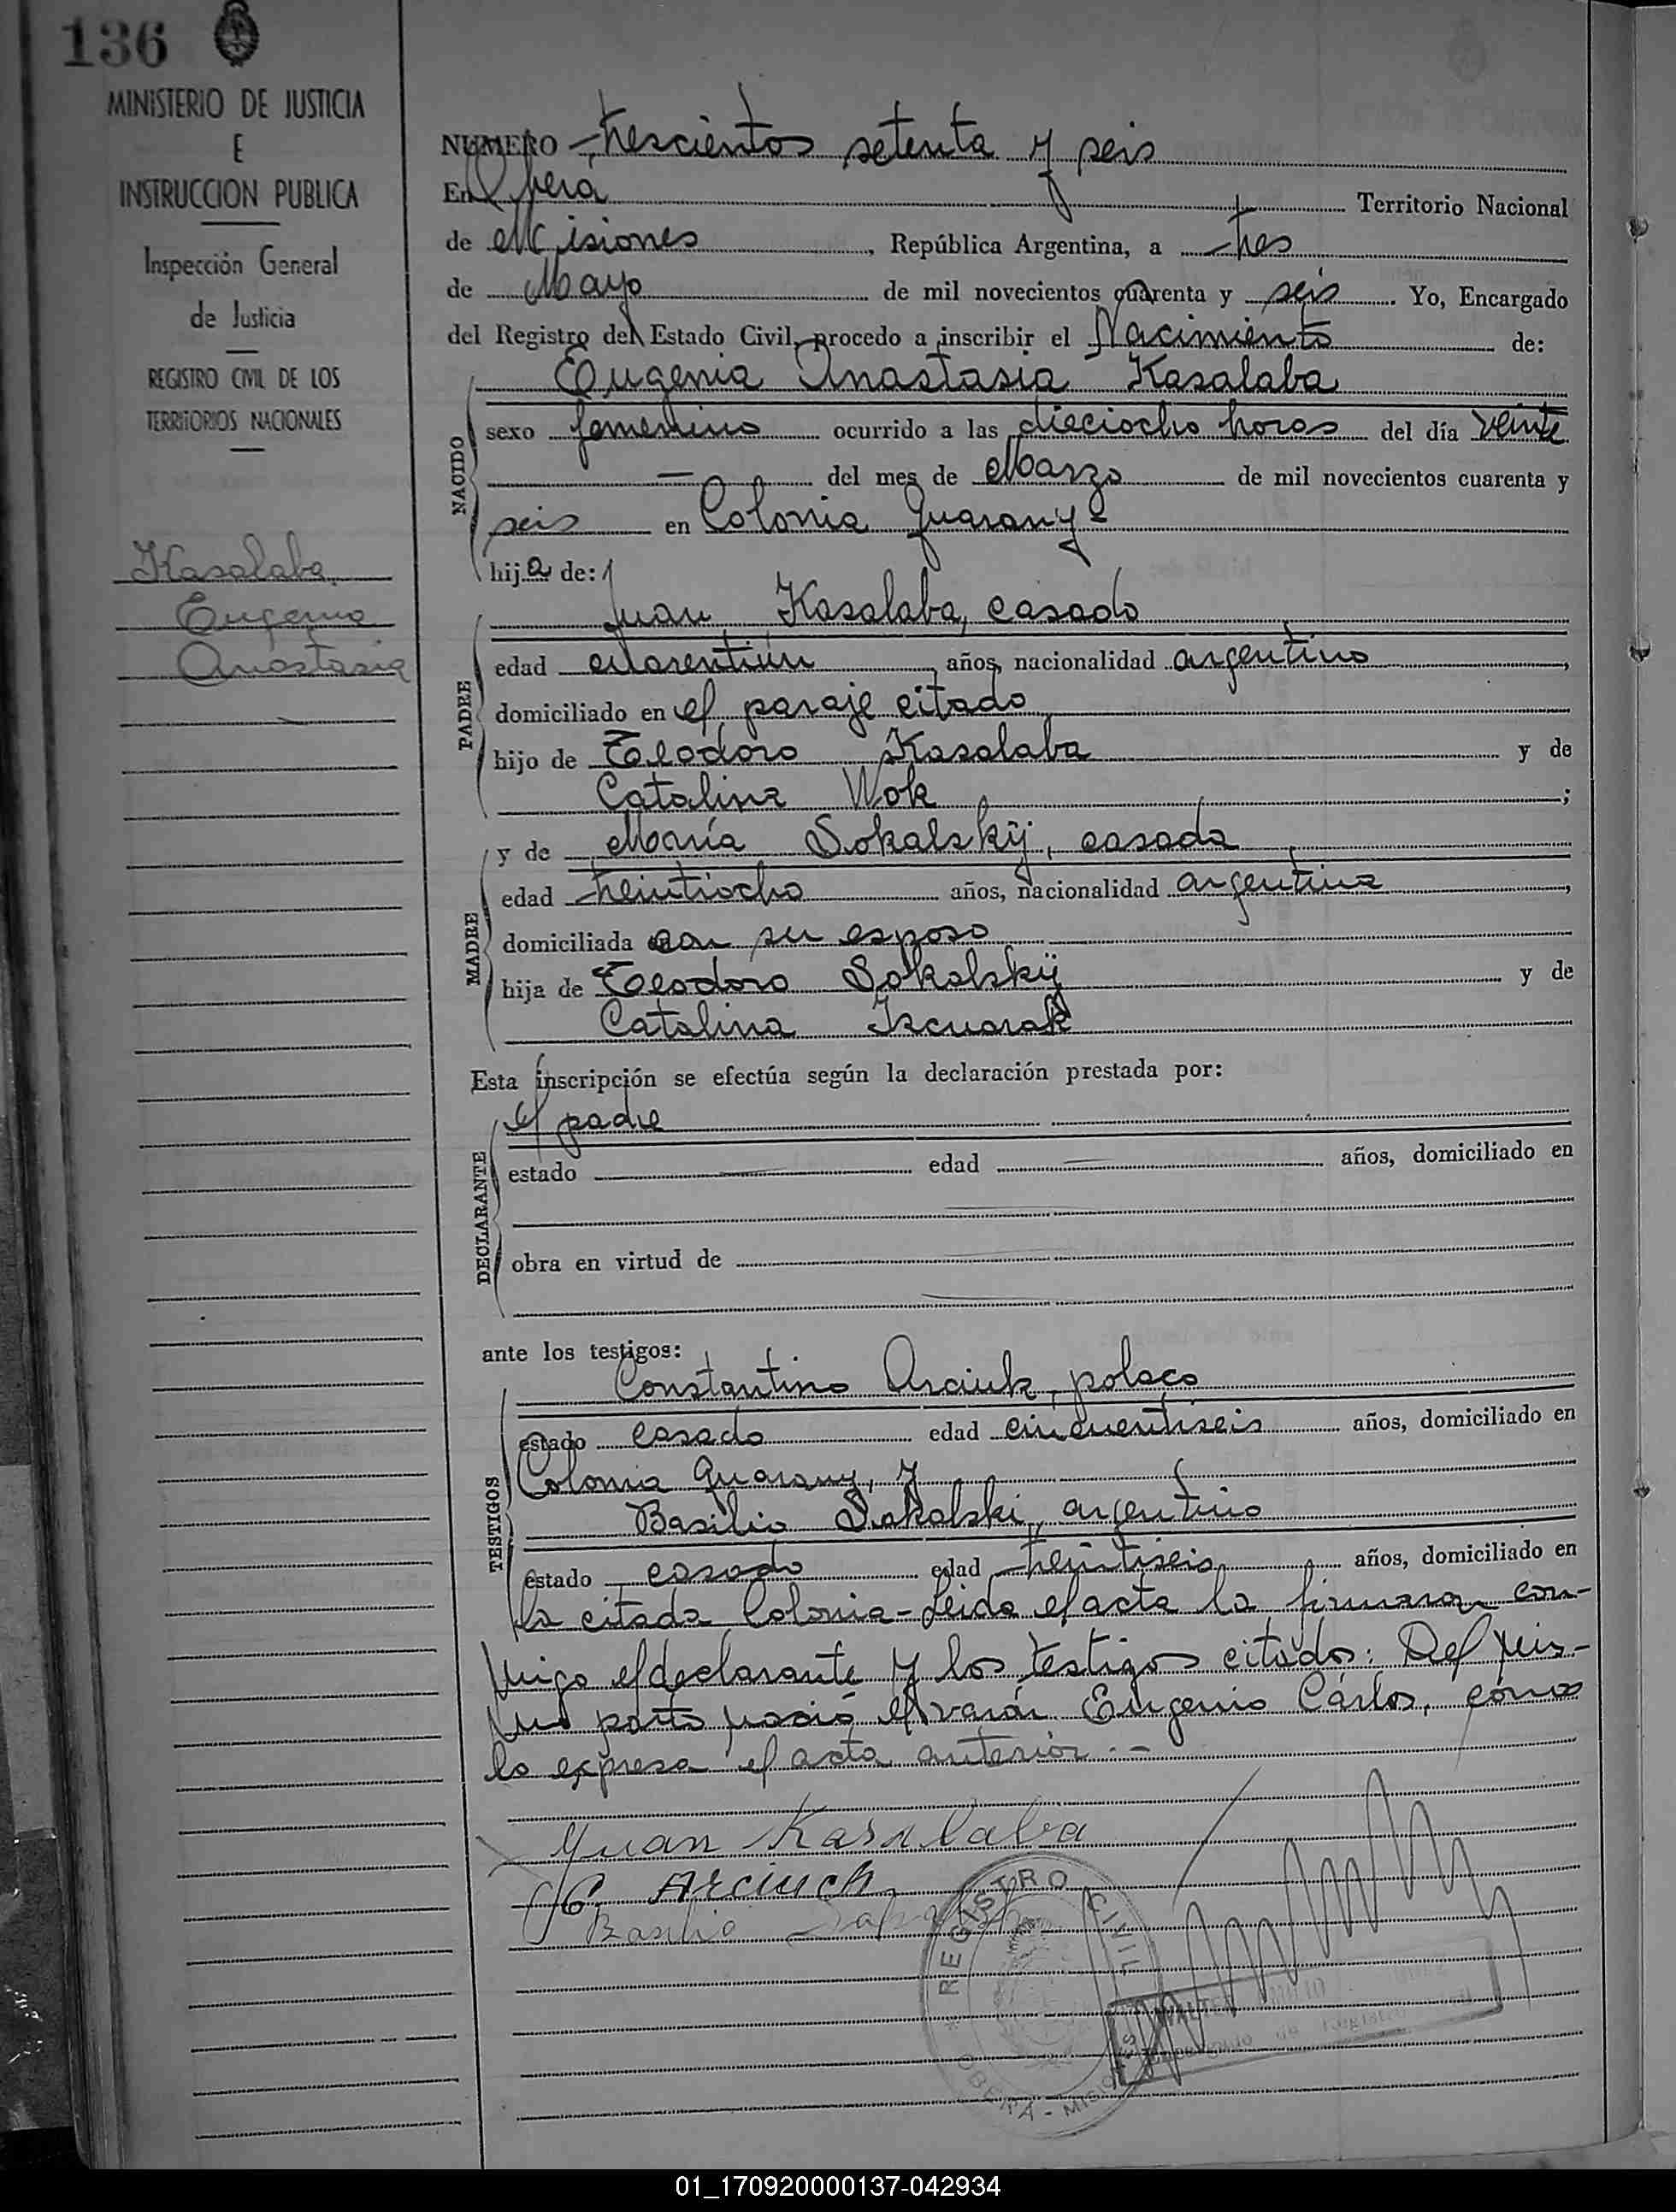 136
MINISTERIO DE JUSTICIA
E
INSTRUCCION PUBLICA
Inspección General
de Justicia
REGISTRO CIVIL DE LOS
TERRITORIOS NACIONALES
Kasalaba
Eugenia
Anastasia
NUMERO trescientos setenta y seis
En Oberá Territorio Nacional
de Misiones, República Argentina, a tres
de Mayo de mil novecientos cuarenta y seis. Yo, Encargado
del Registro del Estado Civil, procedo a inscribir el Nacimiento de:
Eugenia Anastasia Kasalaba
NACIDO
sexo femenino ocurrido a las dieciocho horas del día veinte
— del mes de Marzo de mil novecientos cuarenta y
seis en Colonia Guarany-
hija de:
PADRE
Juan Kasalaba, casado
edad cuarentiún años, nacionalidad argentino,
domiciliado en el paraje citado
hijo de Teodoro Kasalaba y de
Catalina Wok;
MADRE
y de María Sokalskÿ, casada
edad treintiocho años, nacionalidad argentina,
domiciliada con su esposo
hija de Teodoro Sokalskÿ y de
Catalina
Esta inscripción se efectúa según la declaración prestada por:
DECLARANTE
el padre
estado — edad — años, domiciliado en
obra en virtud de
ante los testigos:
TESTIGOS
Constantino Arciuk, polaco
estado casado edad cincuentiseis años, domiciliado en
Colonia Guarany, y
Basilio Sakalski, argentino
estado casado edad treintiseis años, domiciliado en
la citada Colonia- Leida el acta la firmaron con-
migo el declarante y los testigos citados: Del mis-
mo parto nació el varón Eugenio Cárlos, como
lo expresa el acta anterior.-
Juan Kasalaba
C. Arciuch
Basilio
REGISTRO CIVIL
OBERA - MISIONES
WALTER
01_170920000137-042934